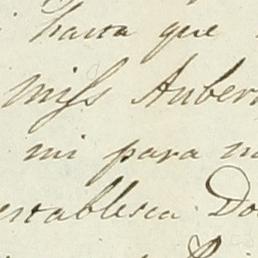 hasta que
Miss Auber
mi para
establesca Do